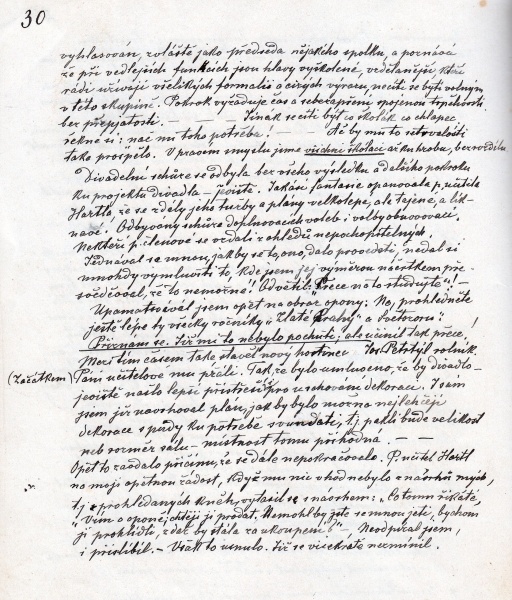 30
vyhlasován, zvláště jako předseda nějakého spolku, a poznává
že při vedlejších funkcích jsou hlavy vyškolené, vzdělanější kteří
rádi užívají všelikých formalit a cizých výrazů, necítí se býti volným
v této skupině. Pokrok vyžaduje čas a sebezapření spojenou trpělivostí
bez přepjatosti. — — — Jinak se cítí být co školák co chlapec,
řekne si: nač mi toho potřeba! — — Ať by mi to
tako prospělo. V pravém smyslu jsme všichni školáci až ku hrobu, bez rozdílu.
Divadelní schůze se odbyla bez všeho výsledku a dalšího pokroku
ku projektu divadla – jeviště. Jakási fantasie opanovala p. učitele
Hartla, že se zdály jeho tužby a plány velkolepé, ale tajené, a lik-
navé. Odbývány schůze doplňovacích voleb i volby obnovovací.
Někteří p. členové se vzdali z ohledů nepochopitelných.
Jednával se mnou, jak by se to, ono, dalo provésti, nedal si
mnohdy vymluviti to, kde jsem jej výměrou náčrtkem pře-
svědčoval, že to nemožné! Odvětil: „Přece na to studujte"!
Upamatovával jsem opět na obraz opony: No, prohlédněte
ještě lépe ty všecky ročníky „Zlaté Prahy" a Světozoru!
Přiznám se. Již mi to nebylo po chuti, ale učinil tak přece,
Mezi tím časem také stavěl nový hostinec Jos. Petrtýl rolník.
(Začátkem) Páni učitelové mu přáli. Tak že bylo umluveno, že by divadlo-
jeviště našlo lepší přístřeší pro uchování dekorací. I sám
jsem již navrhoval plán, jak by bylo možno nejlehčeji
dekorace s půdy ku potřebě svundati, t.j. pakli bude velikost
neb rozměr sálu – místnost tomu příhodna. — —
Opět to zavdalo příčinu, že se dále nepokračovalo. P. učitel Hartl
na moji opětnou žádost, když mu nic vhod nebylo z návrhů mých,
t.j. z prohledaných knih, vytasil se s návrhem: „Co tomu říkáte,
„Vím o oponě, chtějí ji prodat. Nemohl by jste se mnou jeti, bychom
ji prohlédli, zdaž by stála za zakoupení?" – Neodpíral jsem,
i přislíbil. – Však to usnulo. Již se vícekráte nezmínil.